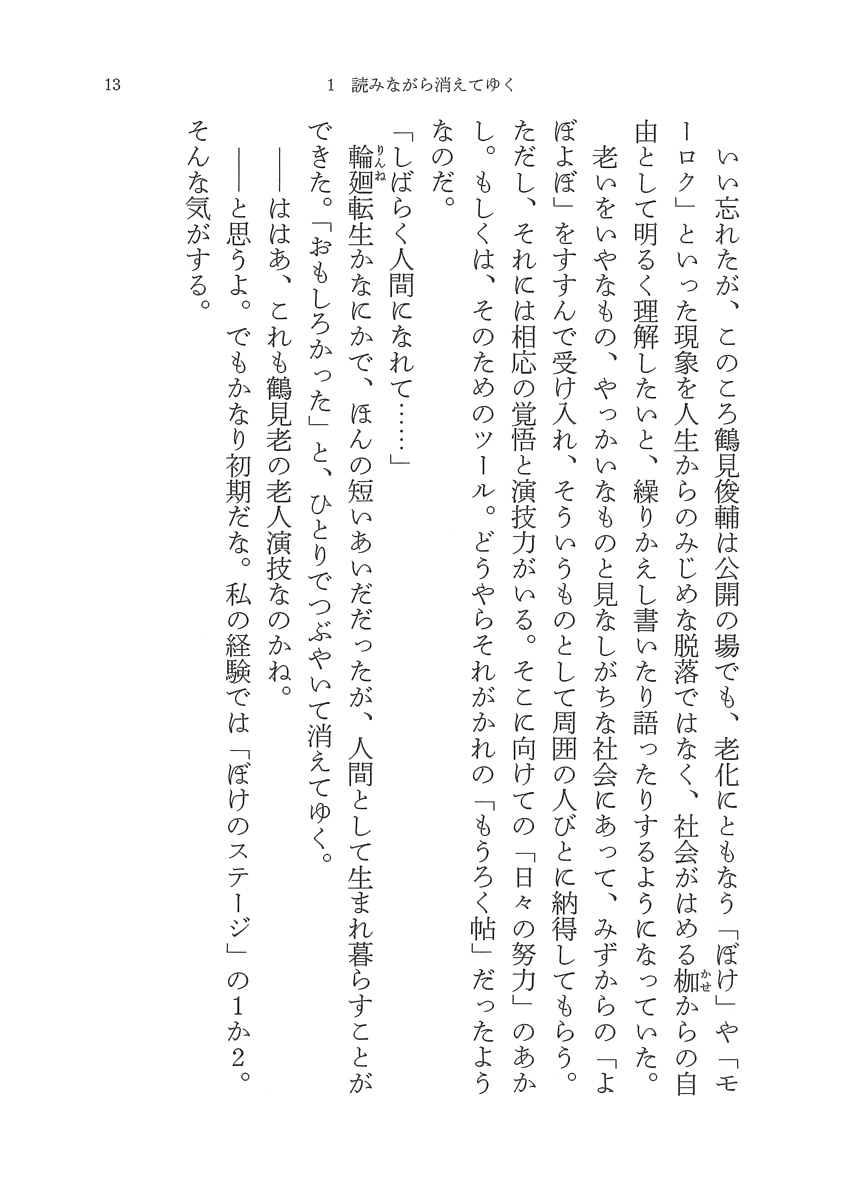 13
1 読みながら消えてゆく
いい忘れたが、このころ鶴見俊輔は公開の場でも、老化にともなう「ぼけ」や「モ
ーロク」といった現象を人生からのみじめな脱落ではなく、社会がはめる枷からの自
かせ
由として明るく理解したいと、繰りかえし書いたり語ったりするようになっていた。
老いをいやなもの、やっかいなものと見なしがちな社会にあって、みずからの「よ
ぼよぼ」をすすんで受け入れ、そういうものとして周囲の人びとに納得してもらう。
ただし、それには相応の覚悟と演技力がいる。そこに向けての「日々の努力」のあか
し。もしくは、そのためのツール。どうやらそれがかれの「もうろく帖」だったよう
なのだ。
「しばらく人間になれて……」
輪廻転生かなにかで、ほんの短いあいだだったが、人間として生まれ暮らすことが
りんね
できた。「おもしろかった」と、ひとりでつぶやいて消えてゆく。
――ははあ、これも鶴見老の老人演技なのかね。
――と思うよ。でもかなり初期だな。私の経験では「ぼけのステージ」の1か2。
そんな気がする。